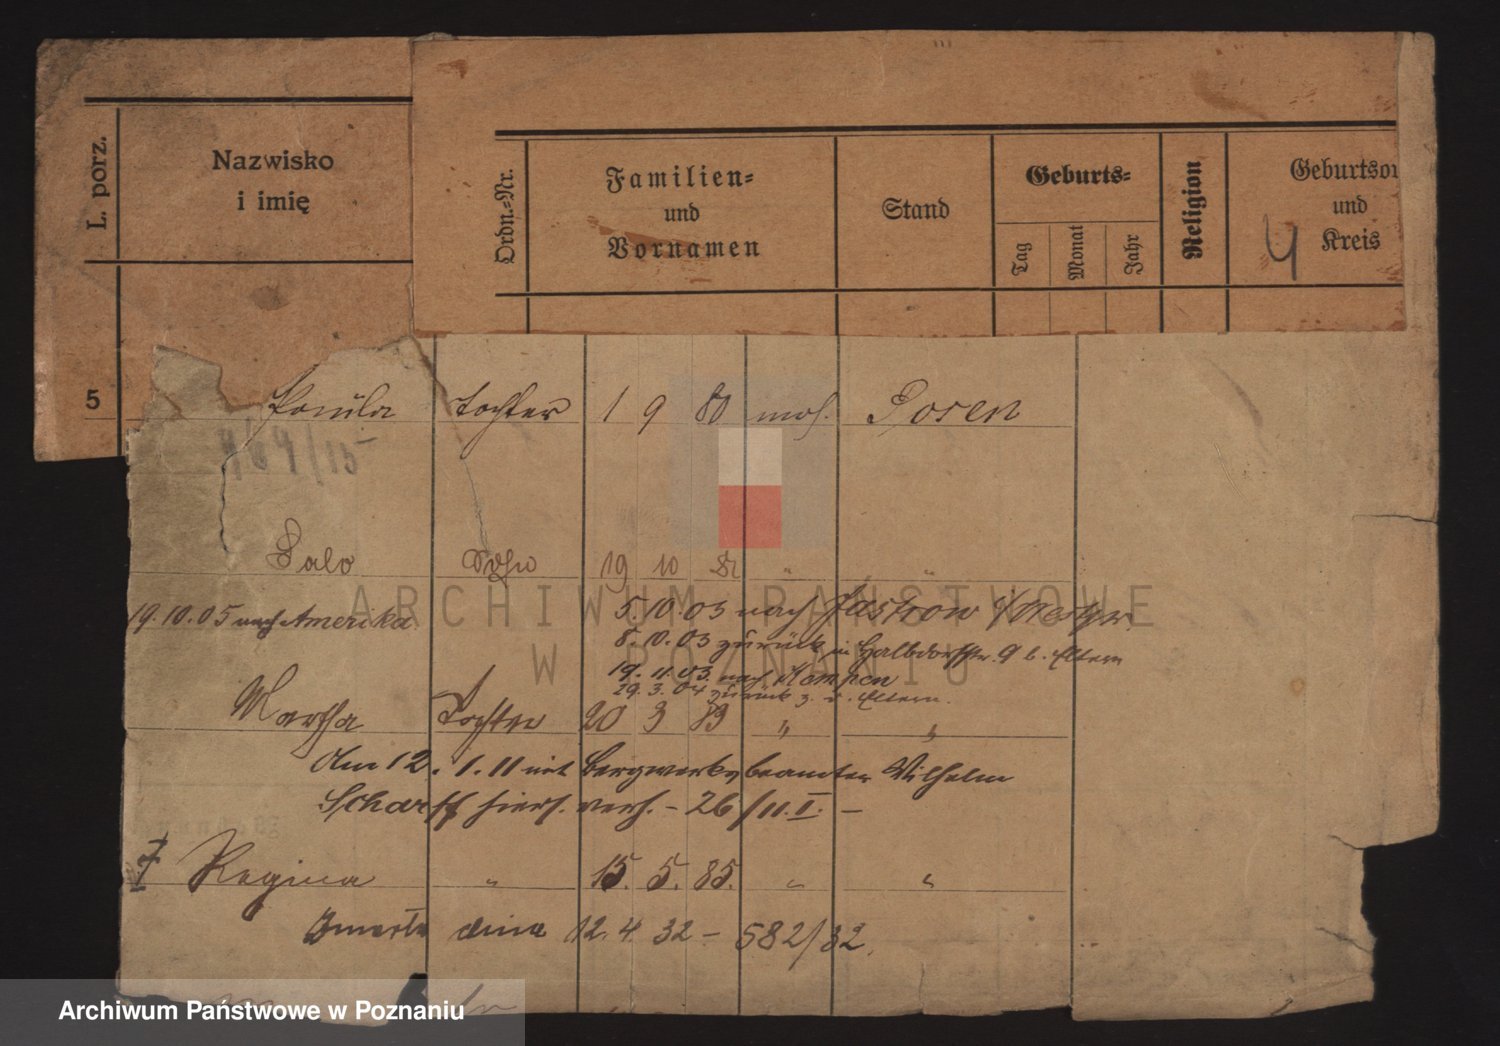 L. porz.
Nazwisko
i imię
Ordn.-Nr.
Familien-
und
Vornamen
Stand
Geburts-
Tag
Monat
Jahr
Religion
Geburtsor
und
Kreis
4
5
Paula Tochter 1 9 80 mos. Posen
Salo Sohn 19 10 81 " "
19.10.05 nach Amerika
5.10.03 nach Jastrow
8.10.03 zurück in Halbdorfstr. 9 b. Eltern
19.11.03. nach Kempen
29.3.04 zurück z. d. Eltern.
Martha Tochter 20 3 83 " "
Am 12. 1. 11 mit Bergwerksbeamten Wilhelm
Scharff hiers. verh. - 26/11. II. -
† Regina " 15. 5. 85. " "
Zmarła dnia 12. 4. 32 - 582/32.
ARCHIWUM PAŃSTWOWE
W POZNANIU
Archiwum Państwowe w Poznaniu